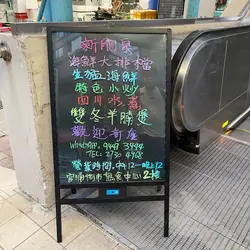 新開張
海鮮大排檔
生猛海鮮
特色小炒
四川水煮
雙冬羊腩煲
歡迎訂座
WhatsApp: 9449 3944
TEL: 2130 4198
營業時間:中午12-晚上12
官涌街市熟食中心2樓